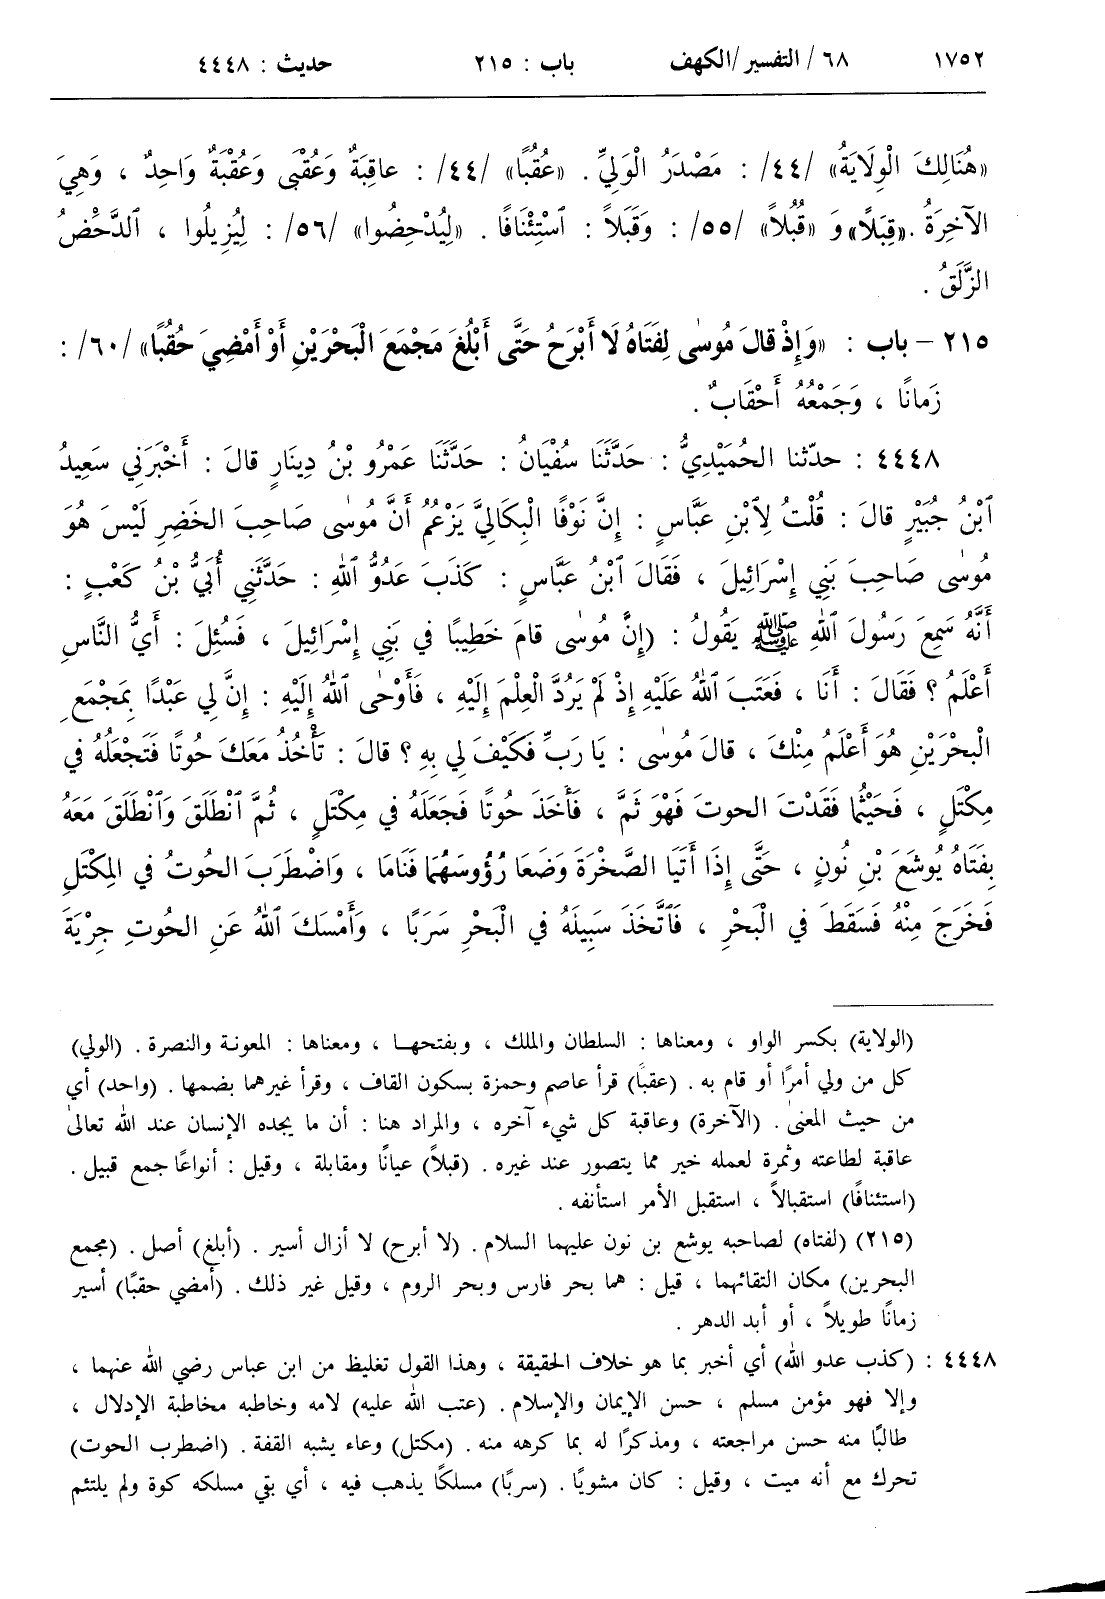 ١٧٥٢ ٦٨/ التفسير/الكهف باب : ٢١٥ حديث : ٤٤٤٨
«هُنَالِكَ الْوِلَايَةُ» /٤٤/ : مَصْدَرُ الْوَلِيِّ . «عُقُبًا» /٤٤/ : عاقِبَةٌ وَعُقْبَى وَعُقْبَةٌ وَاحِدٌ ، وَهِيَ
الآخِرَةُ . «قِبَلًا» وَ «قُبُلًا» /٥٥/ : وَقَبَلًا : ٱسْتِئْنَافًا . «لِيُدْحِضُوا» /٥٦/ : لِيُزِيلُوا ، ٱلدَّحْضُ
الزَّلَقُ .
٢١٥ – باب : «وَإِذْ قالَ مُوسٰى لِفَتَاهُ لَا أَبْرَحُ حَتَّى أَبْلُغَ مَجْمَعَ الْبَحْرَيْنِ أَوْ أَمْضِيَ حُقُبًا» /٦٠/ :
زَمانًا ، وَجَمْعُهُ أَحْقَابٌ .
٤٤٤٨ : حدّثنا الحُمَيْدِيُّ : حَدَّثَنَا سُفْيَانُ : حَدَّثَنَا عَمْرُو بْنُ دِينَارٍ قالَ : أَخْبَرَنِي سَعِيدُ
ٱبْنُ جُبَيْرٍ قالَ : قُلْتُ لِٱبْنِ عَبَّاسٍ : إِنَّ نَوْفًا الْبِكَالِيَّ يَزْعُمُ أَنَّ مُوسٰى صَاحِبَ الخَضِرِ لَيْسَ هُوَ
مُوسٰى صَاحِبَ بَنِي إِسْرَائِيلَ ، فَقَالَ ٱبْنُ عَبَّاسٍ : كَذَبَ عَدُوُّ ٱللهِ : حَدَّثَنِي أُبَيُّ بْنُ كَعْبٍ :
أَنَّهُ سَمِعَ رَسُولَ ٱللهِ ﷺ يَقُولُ : (إِنَّ مُوسٰى قامَ خَطِيبًا في بَنِي إِسْرَائِيلَ ، فَسُئِلَ : أَيُّ النَّاسِ
أَعْلَمُ ؟ فَقَالَ : أَنَا ، فَعَتَبَ ٱللهُ عَلَيْهِ إِذْ لَمْ يَرُدَّ الْعِلْمَ إِلَيْهِ ، فَأَوْحٰى ٱللهُ إِلَيْهِ : إِنَّ لِي عَبْدًا بِمَجْمَعِ
الْبَحْرَيْنِ هُوَ أَعْلَمُ مِنْكَ ، قالَ مُوسٰى : يَا رَبِّ فَكَيْفَ لِي بِهِ ؟ قالَ : تَأْخُذُ مَعَكَ حُوتًا فَتَجْعَلُهُ في
مِكْتَلٍ ، فَحَيْثُما فَقَدْتَ الحوتَ فَهْوَ ثَمَّ ، فَأَخَذَ حُوتًا فَجَعَلَهُ في مِكْتَلٍ ، ثُمَّ ٱنْطَلَقَ وَٱنْطَلَقَ مَعَهُ
بِفَتَاهُ يُوشَعَ بْنِ نُونٍ ، حَتَّى إِذَا أَتَيَا الصَّخْرَةَ وَضَعَا رُؤُوسَهُمَا فَنَامَا ، وَاضْطَرَبَ الحُوتُ في الْمِكْتَلِ
فَخَرَجَ مِنْهُ فَسَقَطَ في الْبَحْرِ ، فَٱتَّخَذَ سَبِيلَهُ في الْبَحْرِ سَرَبًا ، وَأَمْسَكَ ٱللهُ عَنِ الحُوتِ جِرْيَةَ
(الولاية) بكسر الواو ، ومعناها : السلطان والملك ، وبفتحهـا ، ومعناها : المعونة والنصرة . (الولي)
كل من ولي أمرًا أو قام به . (عقبًا) قرأ عاصم وحمزة بسكون القاف ، وقرأ غيرهما بضمها . (واحد) أي
من حيث المعنىٰ . (الآخرة) وعاقبة كل شيء آخره ، والمراد هنا : أن ما يجده الإنسان عند الله تعالىٰ
عاقبة لطاعته وثمرة لعمله خير مما يتصور عند غيره . (قبلاً) عيانًا ومقابلة ، وقيل : أنواعًا جمع قبيل .
(استئنافًا) استقبالاً ، استقبل الأمر استأنفه .
(٢١٥) (لفتاه) لصاحبه يوشع بن نون عليهما السلام . (لا أبرح) لا أزال أسير . (أبلغ) أصل . (مجمع
البحرين) مكان التقائهما ، قيل : هما بحر فارس وبحر الروم ، وقيل غير ذلك . (أمضي حقبًا) أسير
زمانًا طويلاً ، أو أبد الدهر .
٤٤٤٨ : (كذب عدو الله) أي أخبر بما هو خلاف الحقيقة ، وهذا القول تغليظ من ابن عباس رضي الله عنهما ،
وإلا فهو مؤمن مسلم ، حسن الإيمان والإسلام . (عتب الله عليه) لامه وخاطبه مخاطبة الإدلال ،
طالبًا منه حسن مراجعته ، ومذكرًا له بما كرهه منه . (مكتل) وعاء يشبه القفة . (اضطرب الحوت)
تحرك مع أنه ميت ، وقيل : كان مشويًا . (سربًا) مسلكًا يذهب فيه ، أي بقي مسلكه كوة ولم يلتئم